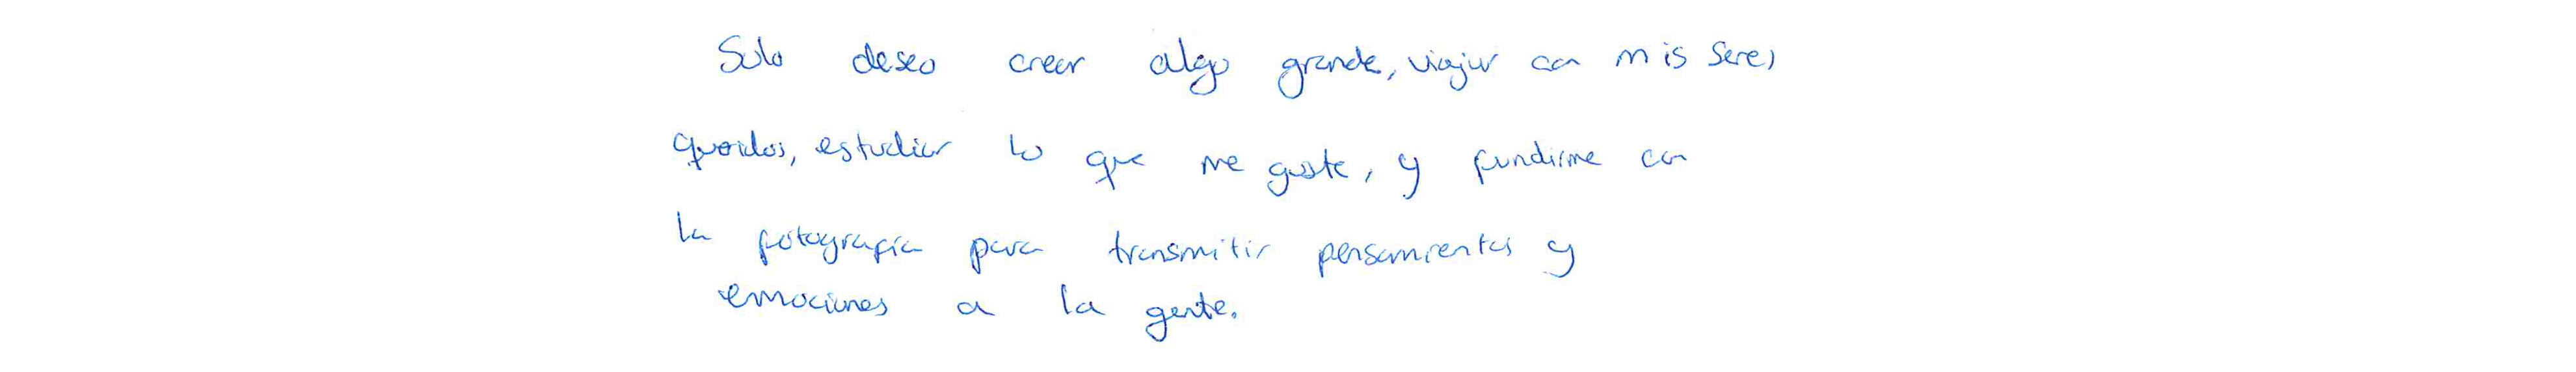 Solo deseo crear algo grande, viajar con mis seres
queridos, estudiar lo que me guste, y fundirme con
la fotografía para transmitir pensamientos y
emociones a la gente.